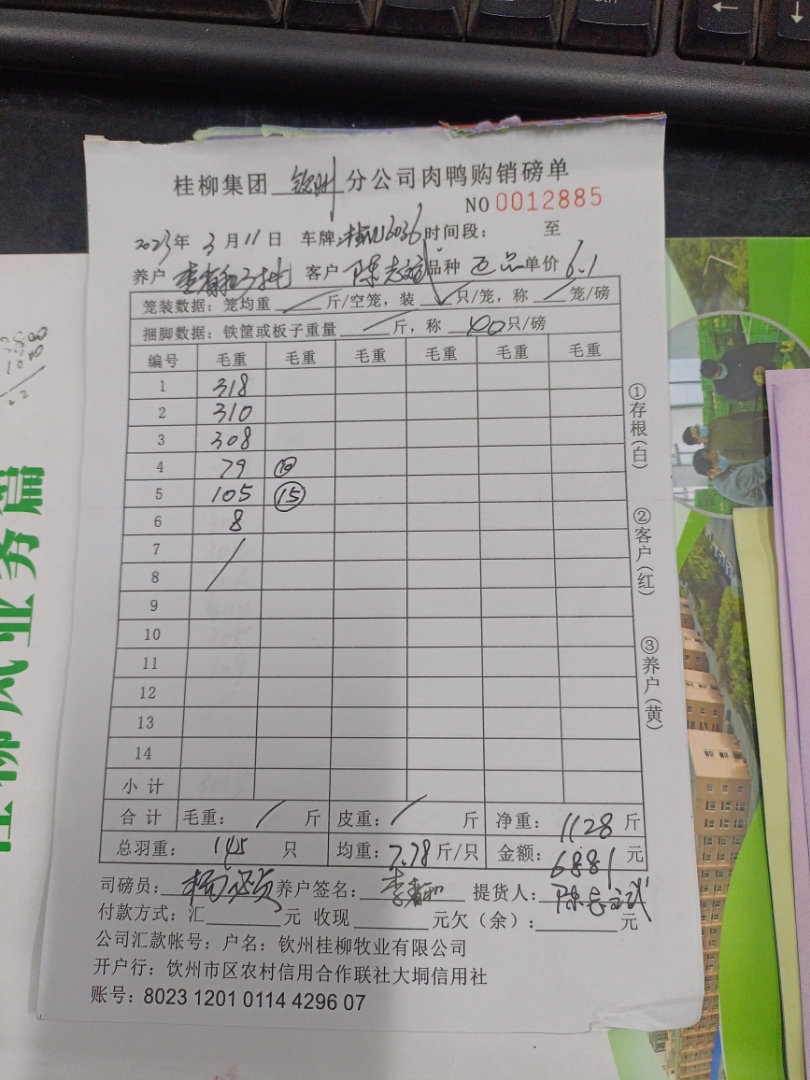 桂柳集团 钦州 分公司肉鸭购销磅单
NO 0012885
2023年 3月11日 车牌: 时间段: 至
养户 客户 陈志斌 品种 正品 单价 6.1
笼装数据:笼均重 / 斤/空笼,装 / 只/笼,称 / 笼/磅
捆脚数据:铁筐或板子重量 / 斤,称 40 只/磅
编号 毛重 毛重 毛重 毛重 毛重 毛重
1 318
2 310
3 308
4 79 ⑩
5 105 ⑮
6 8
7 /
8
9
10
11
12
13
14
小计
合计 毛重: / 斤 皮重: / 斤 净重: 1128 斤
总羽重: 145 只 均重: 7.78 斤/只 金额: 6881 元
司磅员: 养户签名: 提货人:
付款方式:汇 元 收现 元欠(余): 元
公司汇款帐号:户名:钦州桂柳牧业有限公司
开户行:饮州市区农村信用合作联社大垌信用社
账号:8023 1201 0114 4296 07
①存根(白)
②客户(红)
③养户(黄)
业务篇